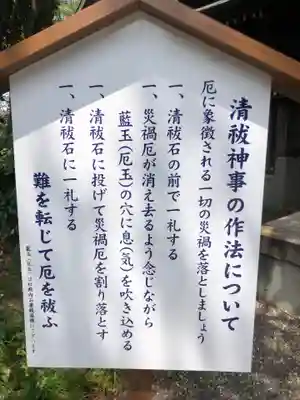 清祓神事の作法について
厄に象徴される一切の災禍を落としましょう
一、清祓石の前で一礼する
一、災禍厄が消え去るよう念じながら
藍玉(厄玉)の穴に息(気)を吹き込める
一、清祓石に投げて災禍厄を割り落とす
一、清祓石に一礼する
難を転じて厄を祓ふ